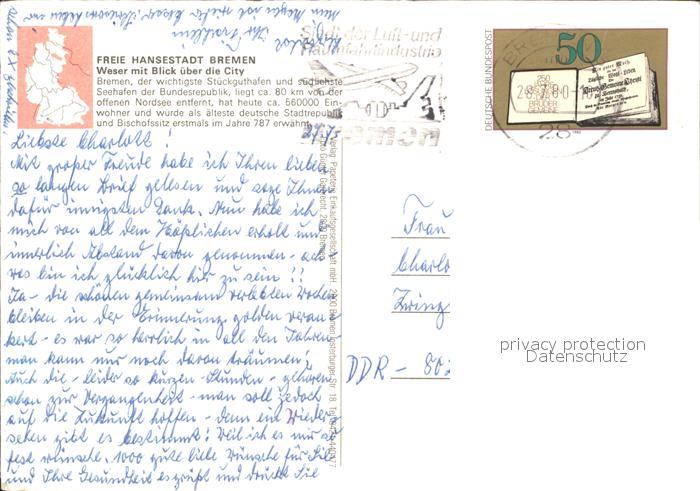 FREIE HANSESTADT BREMEN
Weser mit Blick über die City
Bremen, der wichtigste Stückguthafen und südlichste
Seehafen der Bundesrepublik, liegt ca. 80 km von der
offenen Nordsee entfernt, hat heute ca. 560000 Ein-
wohner und wurde als älteste deutsche Stadtrepublik
und Bischofssitz erstmals im Jahre 787 erwähnt.
Stadt der Luft- und
Raumfahrtindustrie
Bremen
DEUTSCHE BUNDESPOST
50
250
BRÜDER
GEMEINE
28
Liebste Charlott!
Mit großer Freude habe ich Ihren lieben
so langen Brief gelesen und sage Ihnen
dafür innigsten Dank. Nun habe ich
mich von all dem Häßlichen erholt und
innerlich Abstand davon genommen - ach
was bin ich glücklich hier zu sein!!
Ja - die schönen gemeinsam verlebten Wochen
bleiben in der Erinnerung golden veran
kert - es war so herrlich in all den Jahren
man kann nur noch davon träumen!
Auch die - leider so kurzen - Stunden - gehören
schon zur Vergangenheit - man soll jedoch
auf die Zukunft hoffen - denn ein Wieder-
sehen gibt es bestimmt! Weil ich es mir so
fest wünsche. 1000 gute liebe Wünsche für Sie
und Ihre Gesundheit es grüßt und drückt Sie
Frau
Charlo
Zwing
DDR - 80
privacy protection
Datenschutz